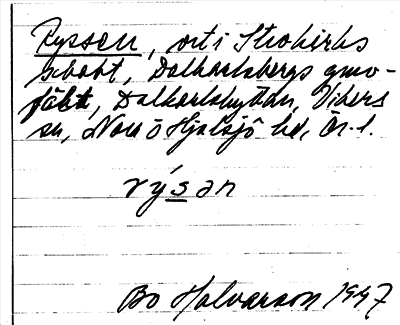 Ryssen, ort i Strokirks
schakt, Dalkarlsbergs gruv-
fält, Dalkarlshyttan, Vikers
sn, Nora o Hjulsjö hd, Ör. l.
rýsan
Bo Halvarson 1947